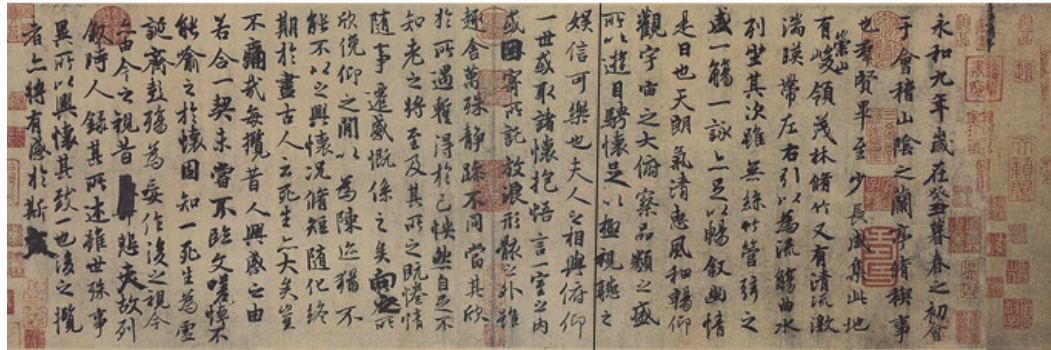 永和九年歲在癸丑暮春之初會
于會稽山陰之蘭亭脩稧事
也羣賢畢至少長咸集此地
有崇山峻領茂林脩竹又有清流激
湍暎帶左右引以為流觴曲水
列坐其次雖無絲竹管弦之
盛一觴一詠亦足以暢叙幽情
是日也天朗氣清惠風和暢仰
觀宇宙之大俯察品類之盛
所以遊目騁懷足以極視聽之
娛信可樂也夫人之相與俯仰
一世或取諸懷抱悟言一室之內
或因寄所託放浪形骸之外雖
趣舍萬殊靜躁不同當其欣
於所遇蹔得於己怏然自足不
知老之將至及其所之既惓情
隨事遷感慨係之矣向之所
欣俛仰之閒以為陳迹猶不
能不以之興懷況脩短隨化終
期於盡古人云死生亦大矣豈
不痛哉每攬昔人興感之由
若合一契未嘗不臨文嗟悼不
能喻之於懷固知一死生為虛
誕齊彭殤為妄作後之視今
亦由今之視昔悲夫故列
叙時人錄其所述雖世殊事
異所以興懷其致一也後之攬
者亦將有感於斯文